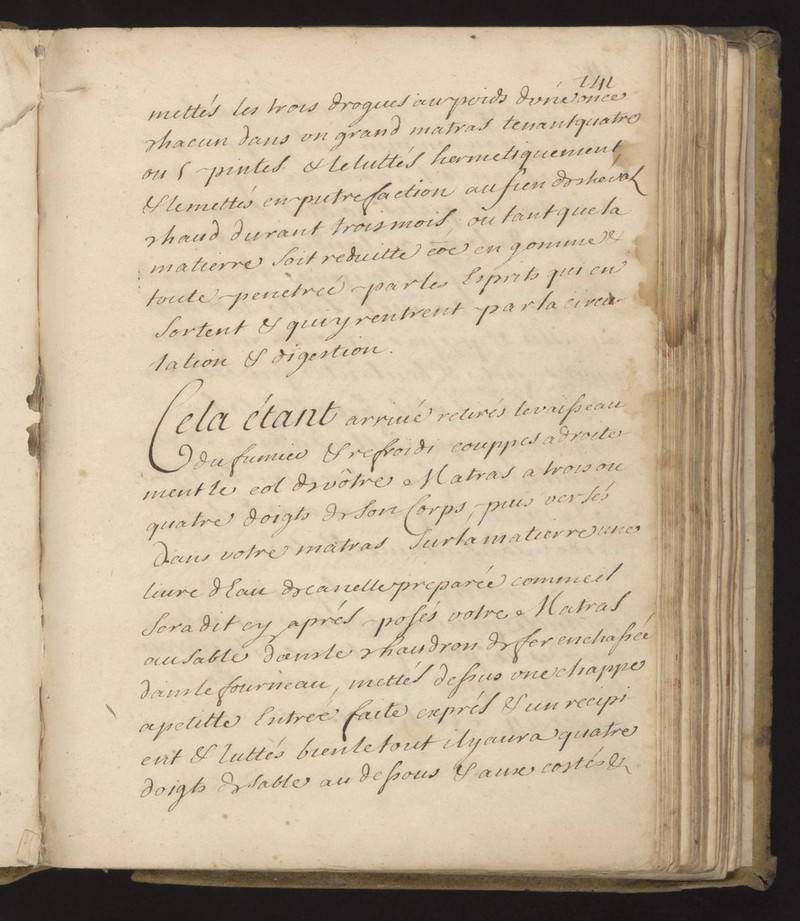 141
mettés les trois drogues au poids d'une once
chacun dans un grand matras tenant quatre
ou 5 pintes & le luttés hermetiquement,
& le mettés en putrefaction au fien de cheval
chaud durant trois mois, ou tant que la
matierre soit reduitte cōe en gomme &
toute penetreé par les Esprits qui en
sortent & qui y rentrent par la circu
lation & digestion.
Cela étant arrivé retirés le vaisseau
du fumier & refroidi couppes adroite
ment le col de vôtre Matras a trois ou
quatre doigts de son Corps, puis versés
Dans votre matras sur la matierre une
livre d'Eau de canelle preparée comme il
sera dit cy aprés posés votre Matras
au sable dans le chaudron de fer enchassé
dans le fourneau, mettés dessus une chappe
a petitte Entreé faite exprés & un recipi
ent & luttés bien le tout il y aura quatre
doigts de sable au dessous & aux costés &